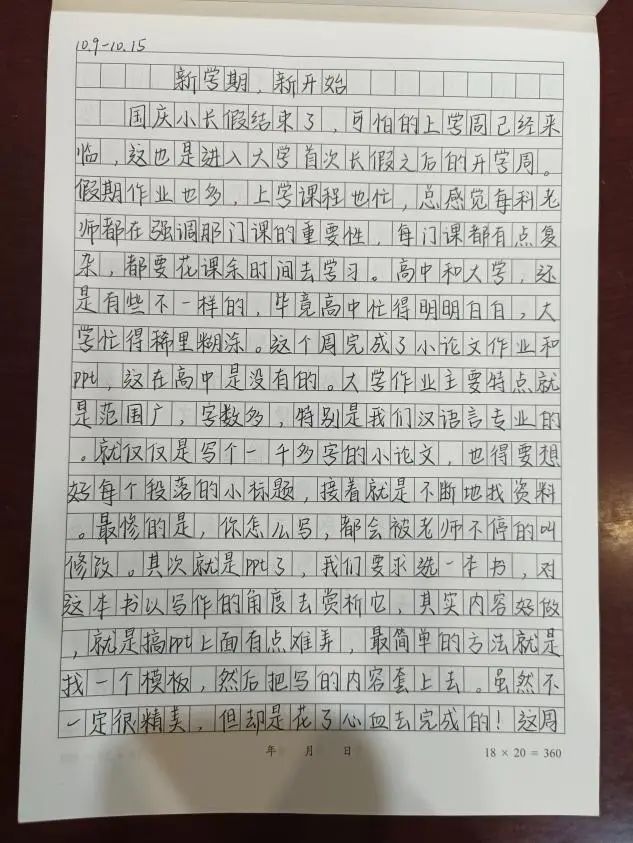 10.9-10.15
新学期，新开始
国庆小长假结束了，可怕的上学周已经来
临，这也是进入大学首次长假之后的开学周。
假期作业也多，上学课程也忙，总感觉每科老
师都在强调那门课的重要性，每门课都有点复
杂，都要花课余时间去学习。高中和大学，还
是有些不一样的，毕竟高中忙得明明白白，大
学忙得稀里糊涂。这个周完成了小论文作业和
ppt，这在高中是没有的。大学作业主要特点就
是范围广，字数多，特别是我们汉语言专业的
。就仅仅是写个一千多字的小论文，也得要想
好每个段落的小标题，接着就是不断地找资料
。最修的是，你怎么写，都会被老师不停的叫
修改。其次就是ppt了，我们要求选一本书，对
这本书以写作的角度去赏析它，其实内容好做
，就是搞ppt上面有点难弄，最简单的方法就是
找一个模板，然后把写的内容套上去。虽然不
一定很精美，但却是花了心血去完成的！这周
年 月 日
18 × 20 = 360